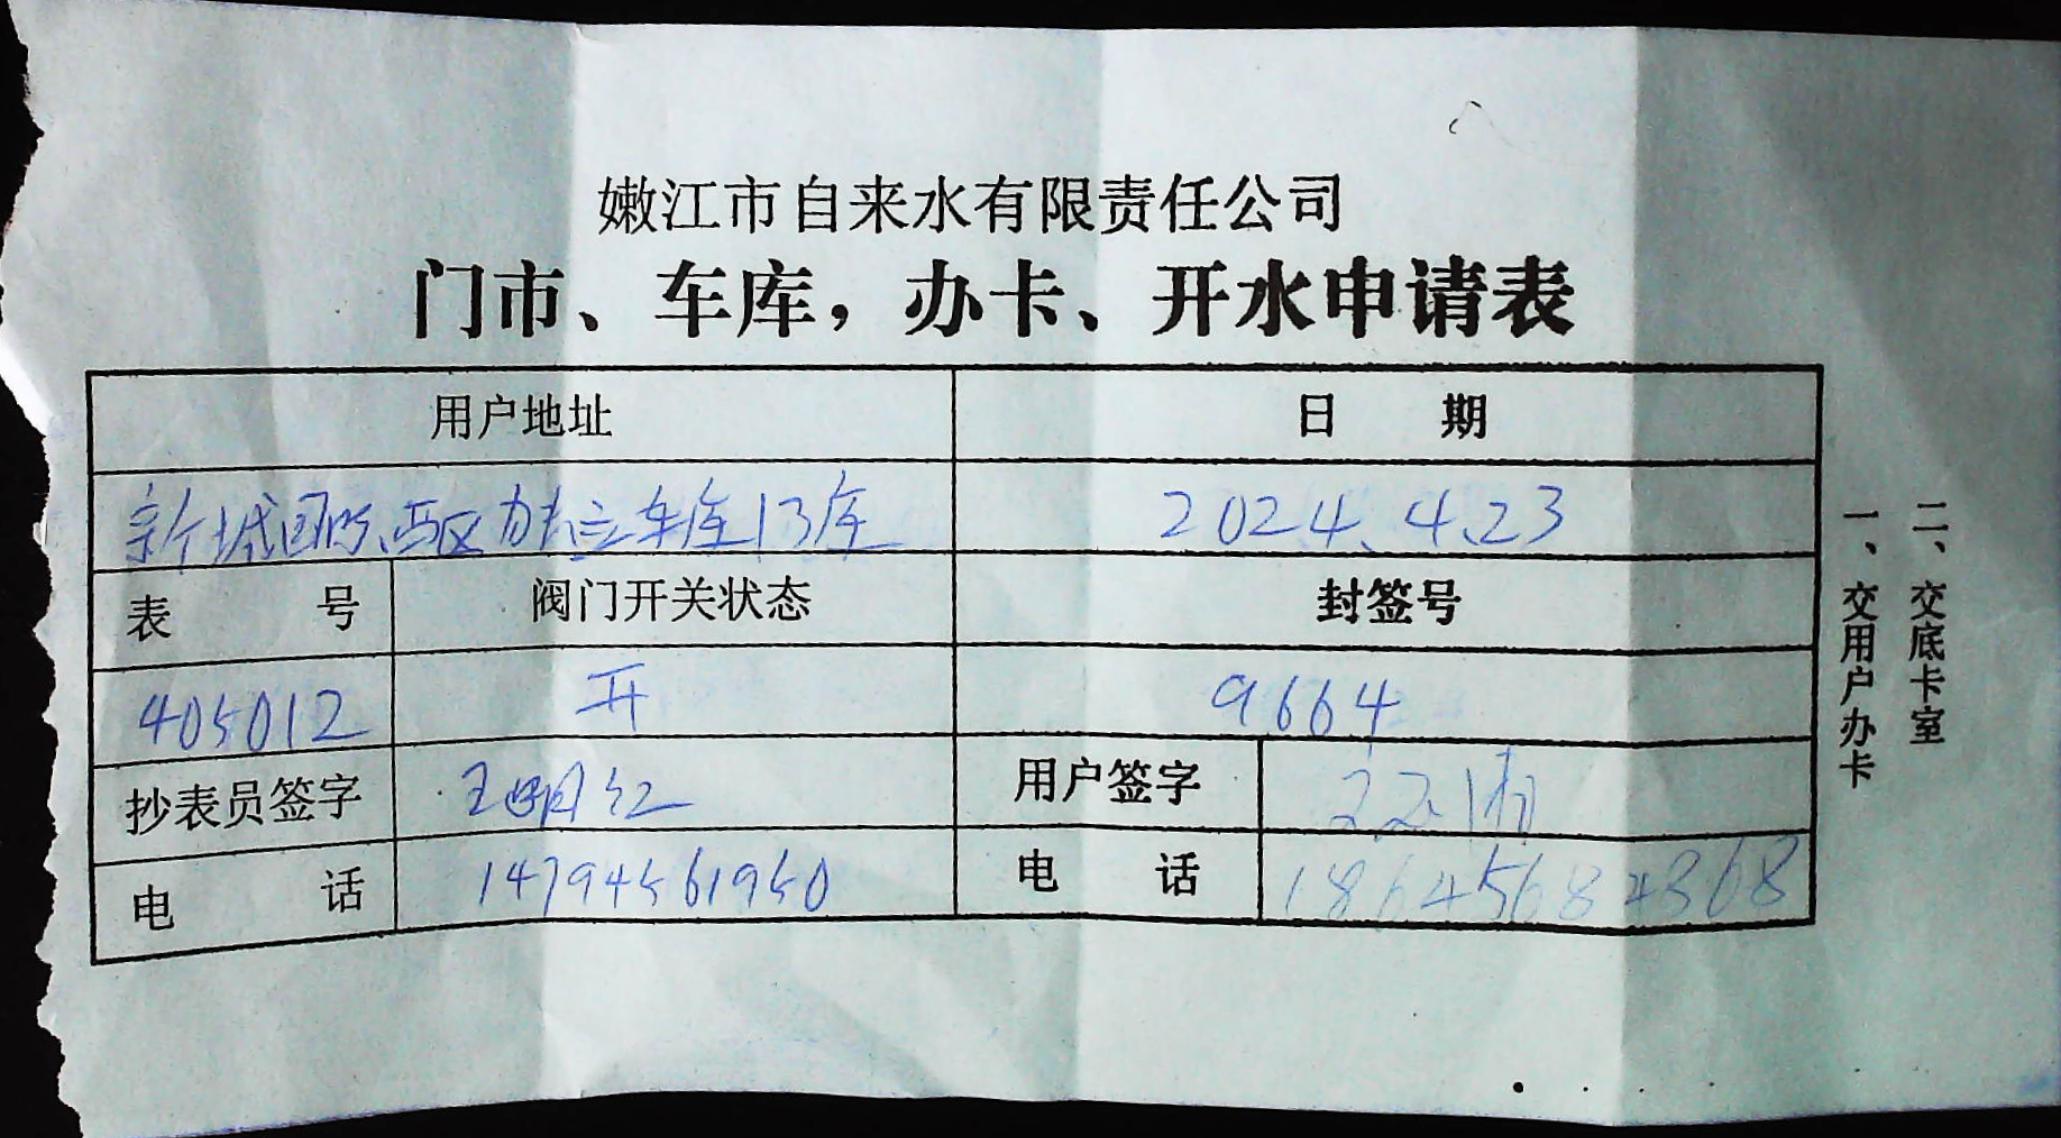 嫩江市自来水有限责任公司
门市、车库，办卡、开水申请表
用户地址 日 期
新城国际西区 车库13库 2024.4.23
表 号 阀门开关状态 封签号
405012 开 9664
抄表员签字 王明红 用户签字
电 话 14794561950 电 话
一、交用户办卡
二、交底卡室